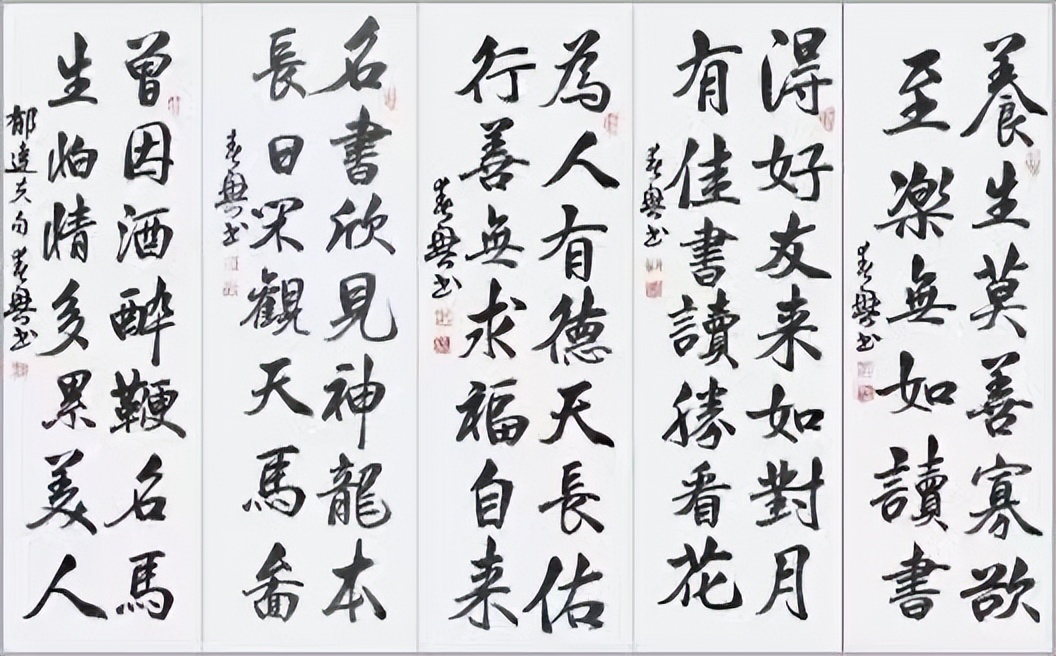 養生莫善寡欲
至楽無如讀書
春興书
得好友来如對月
有佳書讀勝看花
春興书
為人有德天長佑
行善無求福自来
春興书
名書欣見神龍本
長日閑觀天馬畵
春興书
曾因酒醉鞭名馬
生怕情多累美人
郁達夫句春興书